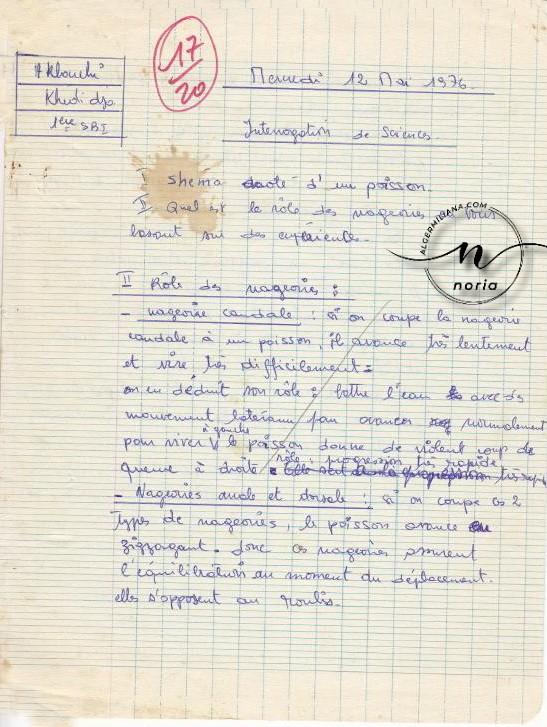 Aklouchi
Khedidja
1ère SBI
17/20
Mercredi 12 Mai 1976.
Interrogation de Sciences.
I shema d'un poisson.
II Quel est le rôle des nageoires vous
basant sur des expériences.
ALGERMILIANA.COM
n
noria
II Rôle des nageoires :
- nageoire caudale : si on coupe la nageoire
caudale à un poisson, il avance très lentement
et vire très difficilement.
on en déduit son rôle : battre l'eau avec des
mouvement lateraux pour avancer normalement
à gauche
pour virer V le poisson donne de violent coup de
rôle : progression très rapide
queue à droite
- Nageoires anale et dorsale : si on coupe ces 2
Types de nageoires, le poisson avance en
zigzagant. donc ces nageoires assurent
l'équilibration au moment du déplacement.
elles s'opposent au roulis.